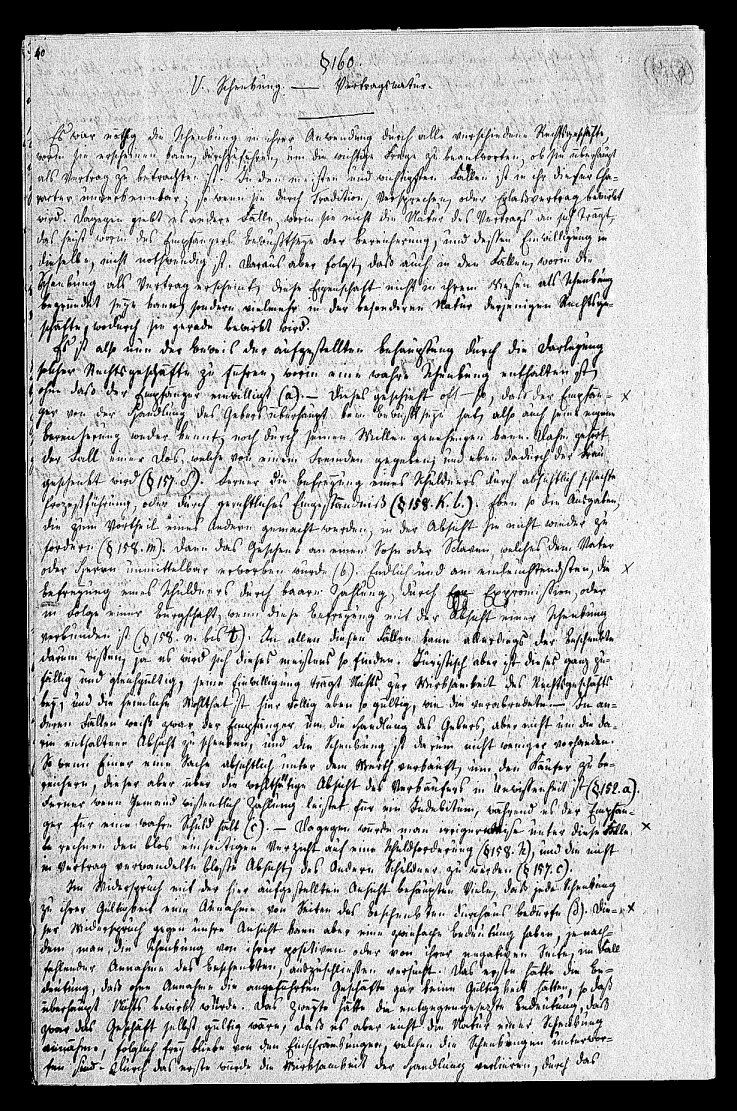 40
§160.
V. Schenkung. — Vertragsnatur.
Es war nöthig die Schenkung in ihrer Anwendung durch alle verschiedene Rechtsgeschäfte,
worin sie erscheinen kann, durchzuführen, um die wichtige Frage zu beantworten, ob sie überhaupt
als Vertrag zu betrachten ist. In den meisten und wichtigsten Fällen ist in ihr dieser Cha-
rakter unverkennbar; so wenn sie durch Tradition, Versprechen, oder Erlaßvertrag bewirkt
wird. Dagegen giebt es andere Fälle, worin sie nicht die Natur des Vertrags an sich trägt,
das heist worin des Empfängers Bewußtseyn der Bereicherung, und dessen Einwilligung in
dieselbe, nicht nothwendig ist. Daraus aber folgt, daß auch in den Fällen, worin die
Schenkung als Vertrag erscheint, diese Eigenschaft nicht in ihrem Wesen als Schenkung
begründet seyn kann, sondern vielmehr in der besonderen Natur derjenigen Rechtsge-
schäfte, wodurch sie gerade bewirkt wird.
Es ist also nun der Beweis der aufgestellten Behauptung durch die Darlegung
solcher Rechtsgeschäfte zu führen, worin eine wahre Schenkung enthalten ist,
ohne daß der Empfänger einwilligt (a). — Dieses geschieht oft so, daß der Empfän- x
ger von der Handlung des Gebers überhaupt kein Bewußtseyn hat, also auch seine eigene
Bereicherung weder kennt, noch durch seinen Willen genehmigen kann. Dahin gehört
der Fall einer Dos, welche von einem Fremden gegeben, und eben dadurch der Frau
geschenkt wird (§157. ). Ferner die Befreyung eines Schuldners durch absichtlich schlechte
Prozeßführung, oder durch gerichtliches Eingeständniß (§158. k. l.). Eben so die Ausgaben,
die zum Vortheil eines Andern gemacht werden, in der Absicht sie nicht wieder zu
fordern (§158. m). Dann das Geschenk an einen Sohn oder Sclaven, welches dem Vater
oder Herrn unmittelbar erworben wurde (b). Endlich und am einleuchtendsten, die x
Befreyung eines Schuldners durch baare Zahlung, durch Expromission, oder
in Folge einer Bürgschaft, wenn diese Befreyung mit der Absicht einer Schenkung
verbunden ist (§158. n bis t). In allen diesen Fällen kann allerdings der Beschenkte
darum wissen, ja es wird sich dieses meistens so finden. Juristisch aber ist dieses ganz zu-
fällig und gleichgültig, seine Einwilligung trägt Nichts zur Wirksamkeit des Rechtsgeschäfts
bey, und die heimliche Wohlthat ist hier völlig eben so gültig, wie die verabredete. — In an-
deren Fällen weiß zwar der Empfänger um die Handlung des Gebers, aber nicht um die da-
rin enthaltene Absicht zu schenken, und die Schenkung ist darum nicht weniger vorhanden.
So wenn Einer eine Sache absichtlich unter dem Werth verkauft, um den Käufer zu be-
reichern, dieser aber über die wohlthätige Absicht des Verkäufers in Unwissenheit ist (§152. a).
Ferner wenn Jemand wissentlich Zahlung leistet für ein Indebitum, während es der Empfän-
ger für eine wahre Schuld hält (c). — Dagegen würde man irrigerweise unter diese Fälle x
rechnen den blos einseitigen Verzicht auf eine Schuldforderung (§158. ), und die nicht
in Vertrag verwandelte bloße Absicht, des Andern Schuldner zu werden (§157. c).
Im Widerspruch mit der hier aufgestellten Ansicht behaupten Viele, daß jede Schenkung
zu ihrer Gültigkeit eine Annahme von Seiten des Beschenkten durchaus bedürfe (d). Die- x
ser Widerspruch gegen unsre Ansicht kann aber eine zweifache Bedeutung haben, je nach-
dem man, die Schenkung von ihrer positiven oder von ihrer negativen Seite, im Fall
fehlender Annahme des Beschenkten, auszuschließen versucht. Das erste hätte die Be-
deutung, daß ohne Annahme die angeführten Geschäfte gar keine Gültigkeit hätten, so daß
überhaupt Nichts bewirkt würde. Das zweyte hätte die entgegengesetzte Bedeutung, daß
zwar das Geschäft selbst gültig wäre, daß es aber nicht die Natur einer Schenkung
annähme, folglich frey bliebe von den Einschränkungen, welchen die Schenkungen unterwor-
fen sind. Durch das erste würde die Wirksamkeit der Handlung verlieren, durch das